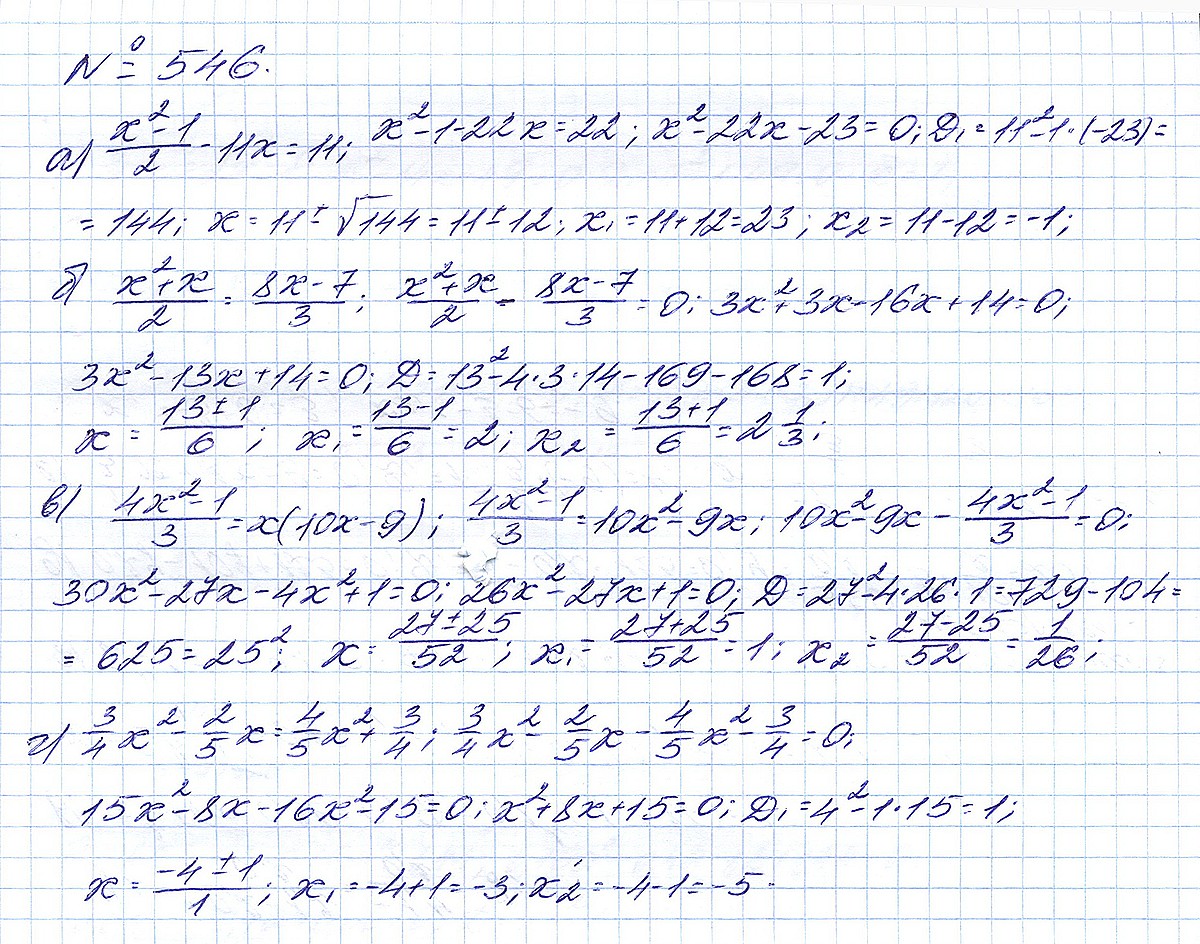 № 546.
а) (x²-1)/2 - 11x = 11; x²-1-22x = 22; x²-22x-23 = 0; Д₁ = 11²-1·(-23) =
= 144; x = 11 ± √144 = 11 ± 12; x₁ = 11+12 = 23; x₂ = 11-12 = -1;
б) (x²+x)/2 = (8x-7)/3; (x²+x)/2 - (8x-7)/3 = 0; 3x²+3x-16x+14 = 0;
3x²-13x+14 = 0; Д = 13²-4·3·14-169-168 = 1;
x = (13±1)/6; x₁ = (13-1)/6 = 2; x₂ = (13+1)/6 = 2 1/3;
в) (4x²-1)/3 = x(10x-9); (4x²-1)/3 = 10x²-9x; 10x²-9x - (4x²-1)/3 = 0;
30x²-27x-4x²+1 = 0; 26x²-27x+1 = 0; Д = 27²-4·26·1 = 729-104 =
= 625 = 25²; x = (27±25)/52; x₁ = (27+25)/52 = 1; x₂ = (27-25)/52 = 1/26;
г) 3/4x² - 2/5x = 4/5x² + 3/4; 3/4x² - 2/5x - 4/5x² - 3/4 = 0;
15x²-8x-16x²-15 = 0; x²+8x+15 = 0; Д₁ = 4²-1·15 = 1;
x = (-4±1)/1; x₁ = -4+1 = -3; x₂ = -4-1 = -5.